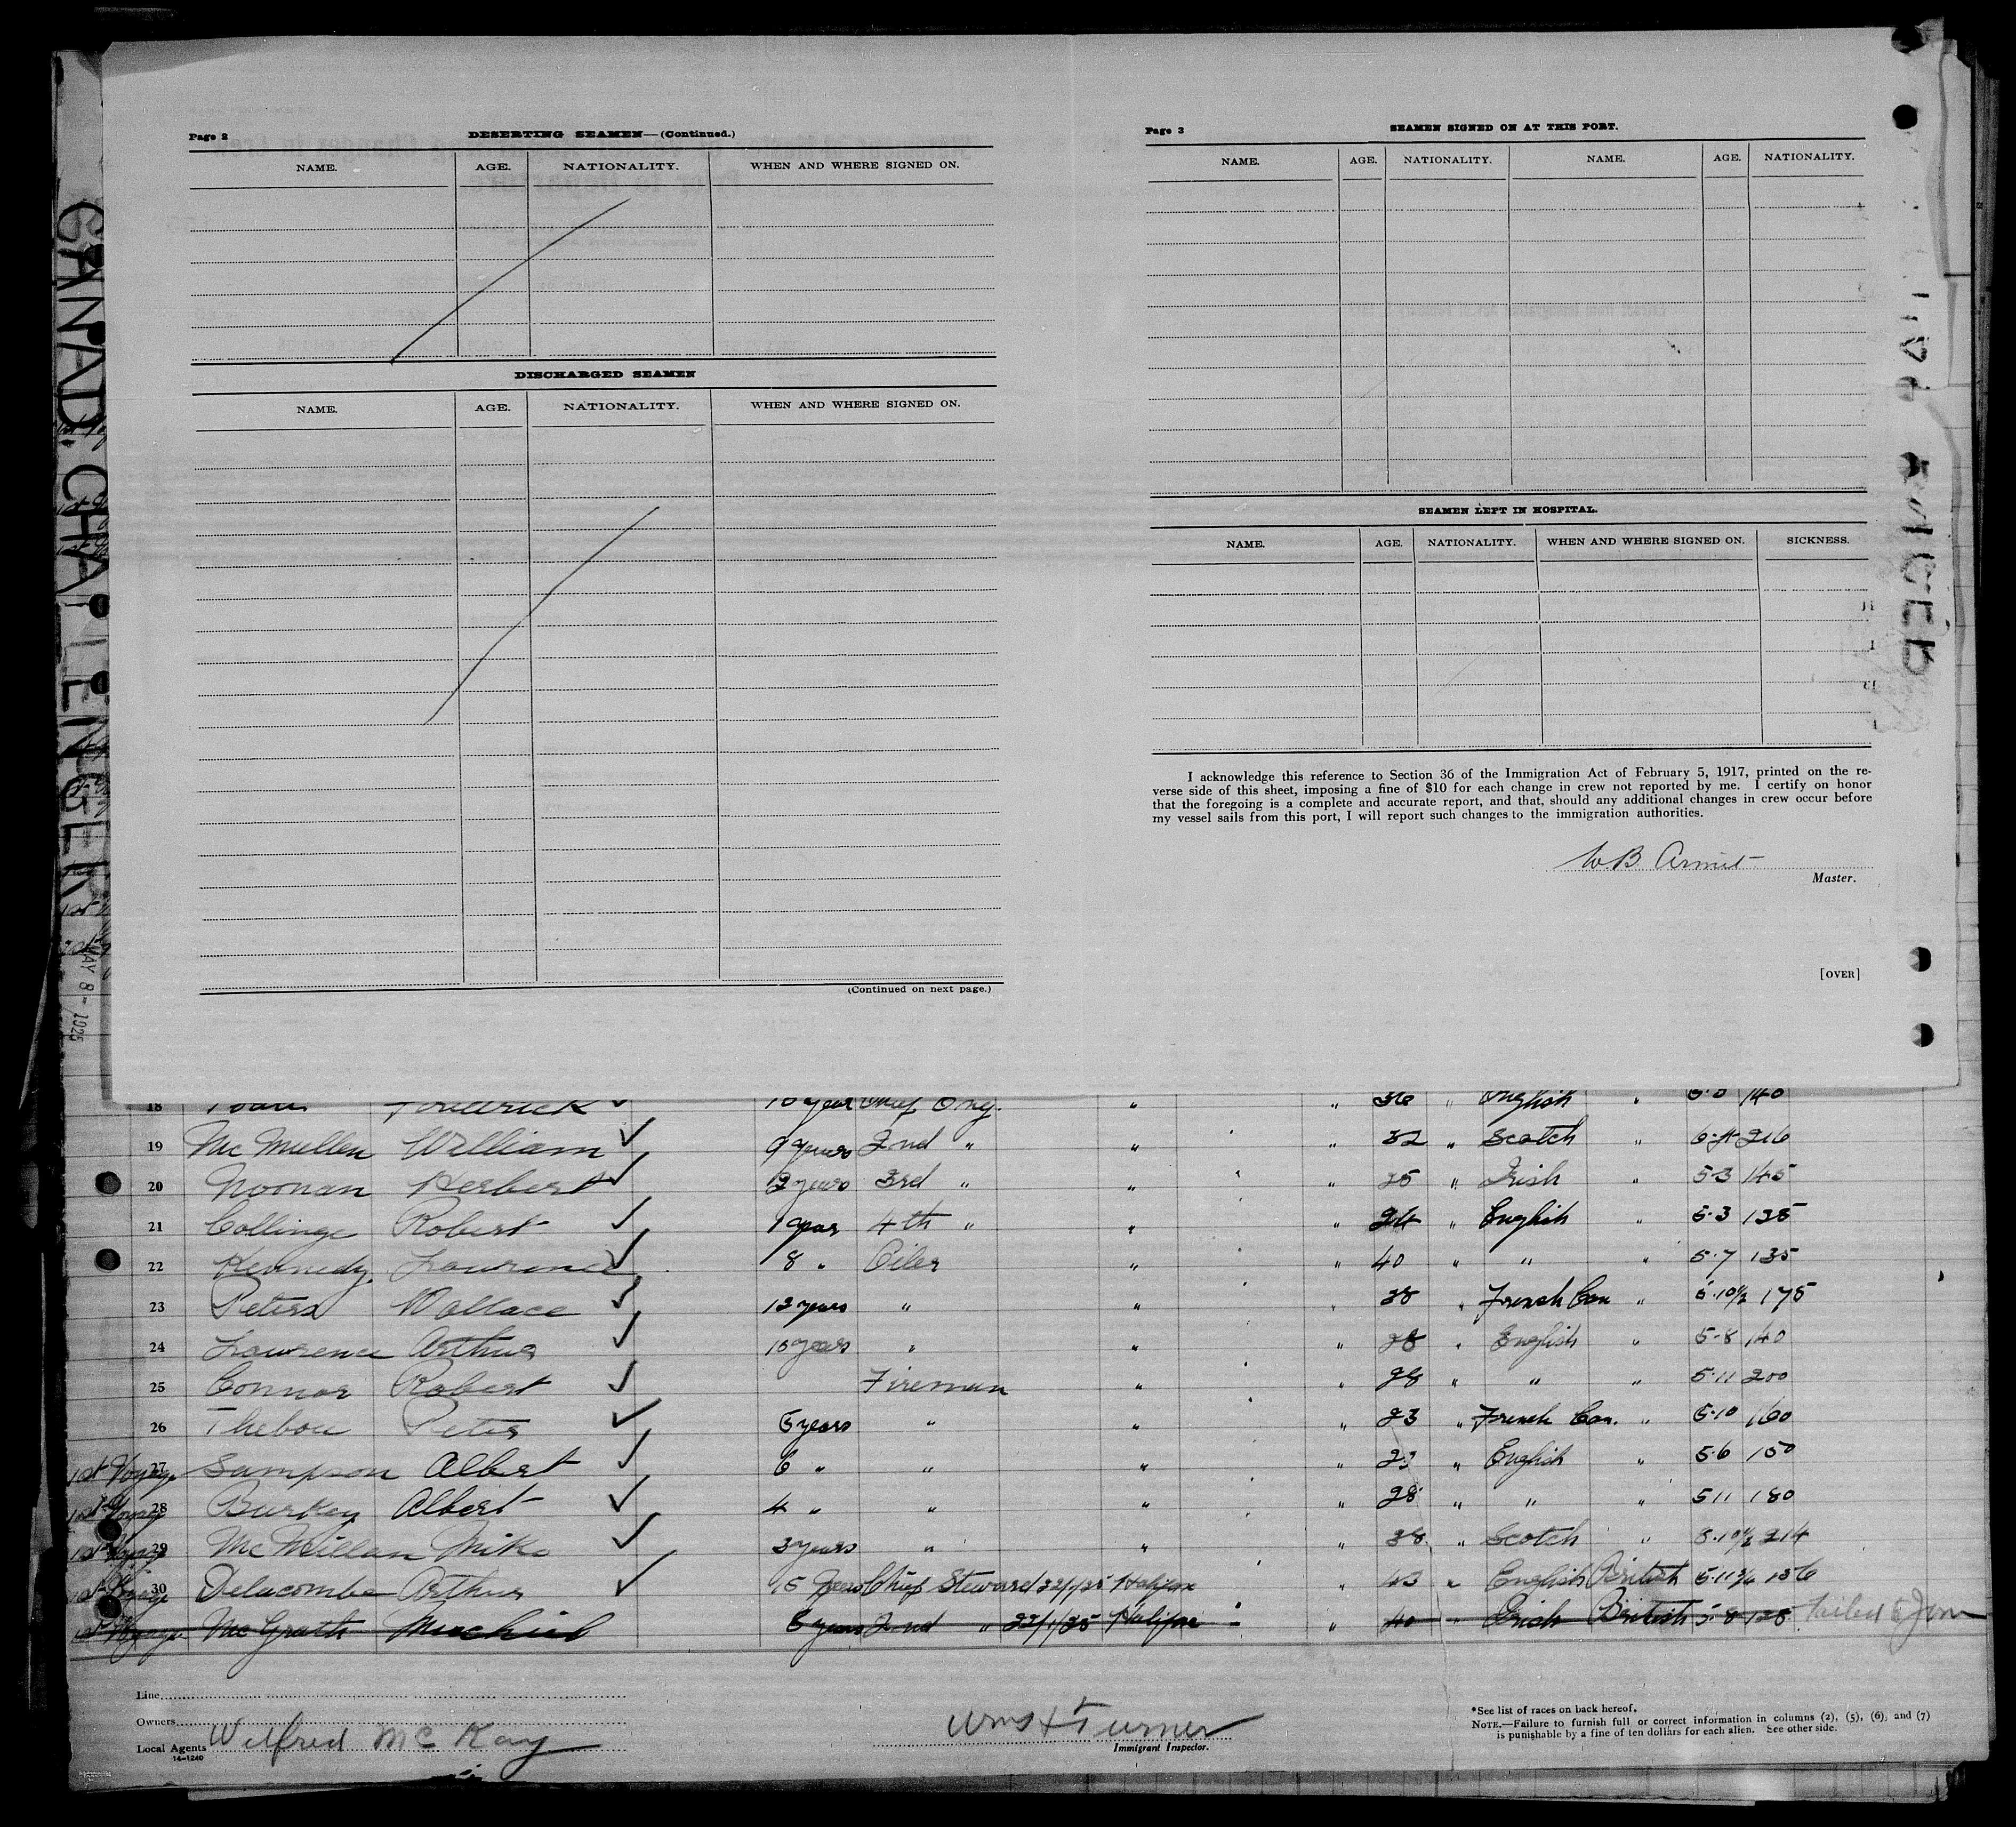 CANAD. CHALLENGER
MAY 8- 1925
Page 2 DESERTING SEAMEN—(Continued.)
NAME. AGE. NATIONALITY. WHEN AND WHERE SIGNED ON.
DISCHARGED SEAMEN
NAME. AGE. NATIONALITY. WHEN AND WHERE SIGNED ON.
(Continued on next page.)
Page 3 SEAMEN SIGNED ON AT THIS PORT.
NAME. AGE. NATIONALITY. NAME. AGE. NATIONALITY.
SEAMEN LEFT IN HOSPITAL.
NAME. AGE. NATIONALITY. WHEN AND WHERE SIGNED ON. SICKNESS.
I acknowledge this reference to Section 36 of the Immigration Act of February 5, 1917, printed on the re-
verse side of this sheet, imposing a fine of $10 for each change in crew not reported by me. I certify on honor
that the foregoing is a complete and accurate report, and that, should any additional changes in crew occur before
my vessel sails from this port, I will report such changes to the immigration authorities.
W.B. Armit
Master.
[OVER]
18 Frederick 10 year Chief Eng. " " 36 " English " 140
19 McMullen William 9 years 2nd " " " 32 " Scotch " 216
20 Noonan Herbert 12 years 3rd " " " 25 " Irish " 5-3 145
21 Collinge Robert 1 year 4th " " " 24 " English " 5-3 135
22 Kennedy Lawrence 8 " Oiler " " 40 " " " 5-7 135
23 Peters Wallace 12 years " " " 38 " French Can " 5-10½ 175
24 Lawrence Arthur 10 years " " " 28 " English " 5-8 140
25 Connor Robert Fireman " " 28 " " " 5-11 200
26 Peter 5 years " " " 23 " French Can. " 5-10 160
1st Voyage 27 Sampson Albert 6 " " " " " English " 5-6 150
1st Voyage 28 Burkey Albert 4 " " " " 28 " " " 5-11 180
1st Voyage 29 McMillan Mike 3 years " " " 38 " Scotch " 5-10½ 214
1st Voyage 30 Delacombe Arthur 15 years Chief Steward 22/1/25 Halifax " 43 " English British 156
1st Voyage McGrath 5 years 2nd " 22/1/25 Halifax " 40 " Irish British 5-8 Failed to Join
Line
Owners
Local Agents Wilfred McKay
14-1240
Turner
Immigrant Inspector.
*See list of races on back hereof.
NOTE.—Failure to furnish full or correct information in columns (2), (5), (6), and (7)
is punishable by a fine of ten dollars for each alien. See other side.